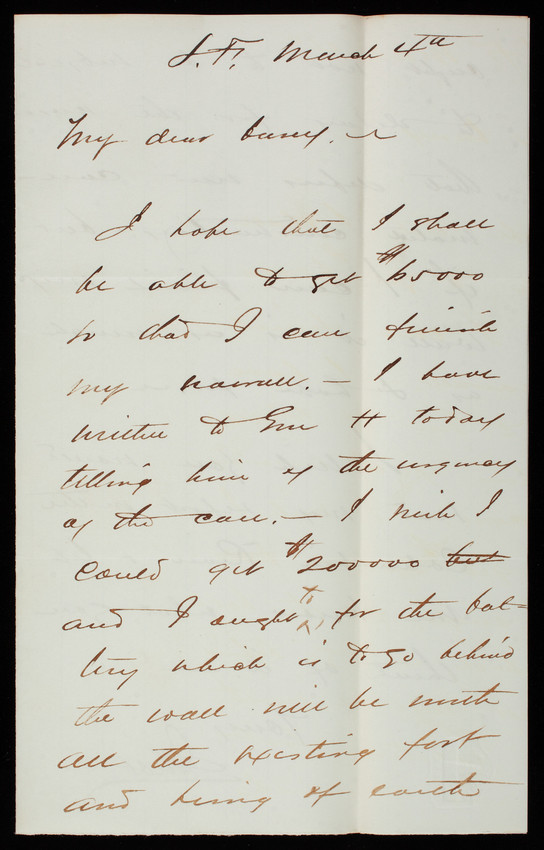 S. F. March 4th
My dear Casey. ~
I hope that I shall
be able to get $65000
so that I can finish
my seawall. — I have
written to Gen H today
telling him of the urgency
of the case. — I wish I
could get $200000 but
and I ought to, for the bat-
tery which is to go behind
the wall will be worth
all the existing fort
and being of earth